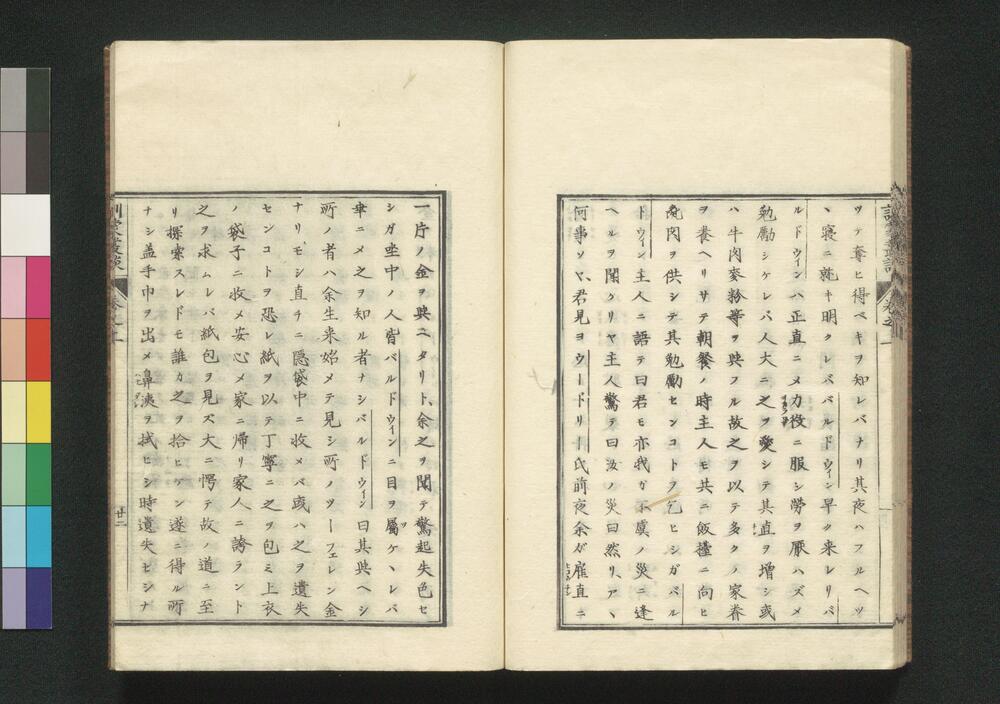 ツテ奪ヒ得ベキヲ知レバナリ其夜ハフルヘツ
ヽ寝ニ就キ明クレババルドウィン早ク来レリバ
ルドウィンハ正直ニメ力役ニ服シ勞ヲ厭ハズメ
勉勵シケレバ人大ニ之ヲ愛シテ其直ヲ増シ或
ハ牛肉麥粉等ヲ與フル故之ヲ以テ多クノ家眷
ヲ養ヘリサテ朝餐ノ時主人モ共ニ飯䑓ニ向ヒ
肉ヲ供シテ其勉勵センコトヲ乞ヒシガバル
ドウィン主人ニ語テ曰君モ亦我ガ不虞ノ災ニ逢
ヘルヲ聞クリヤ主人驚テ曰汝ノ災曰然リ、アヽ
何事ソヤ、君見ヨウードリー氏前夜余ガ雇直ニ
一片ノ金ヲ與ニタリト、余之ヲ聞テ驚起失色セ
シガ坐中ノ人皆バルドウィンニ目ヲ屬ケヽレバ
ニメ之ヲ知ル者ナシバルドウィン曰其與ヘシ
所ノ者ハ余生来始メテ見シ所ノツーフェレン金
ナリモシ直チニ隠袋中ニ收メバ或ハ之ヲ遺失
センコトヲ恐レ紙ヲ以テ丁寧ニ之ヲ包ミ上衣
ノ袋子ニ收メ安心メ家ニ帰リ家人ニ誇ラント
之ヲ求ムレバ紙包ヲ見ズ大ニ愕テ故ノ道ニ至
リ探索スレドモ誰カ之ヲ拾ヒケン遂ニ得ル所
ナシ盖手巾ヲ出メ鼻洟ヲ拭ヒシ時遺失セシナ
卷之一
廿二